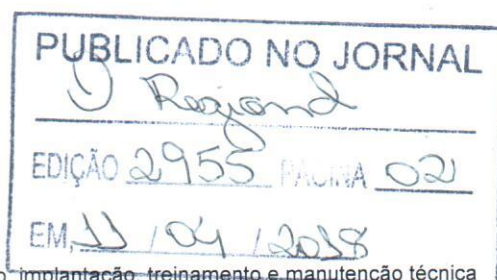 PUBLICADO NO JORNAL
O Regional
EDIÇÃO 2955 PAGINA 02
EM, 11 / 04 / 2018
o, implantação, treinamento e manutenção técnica